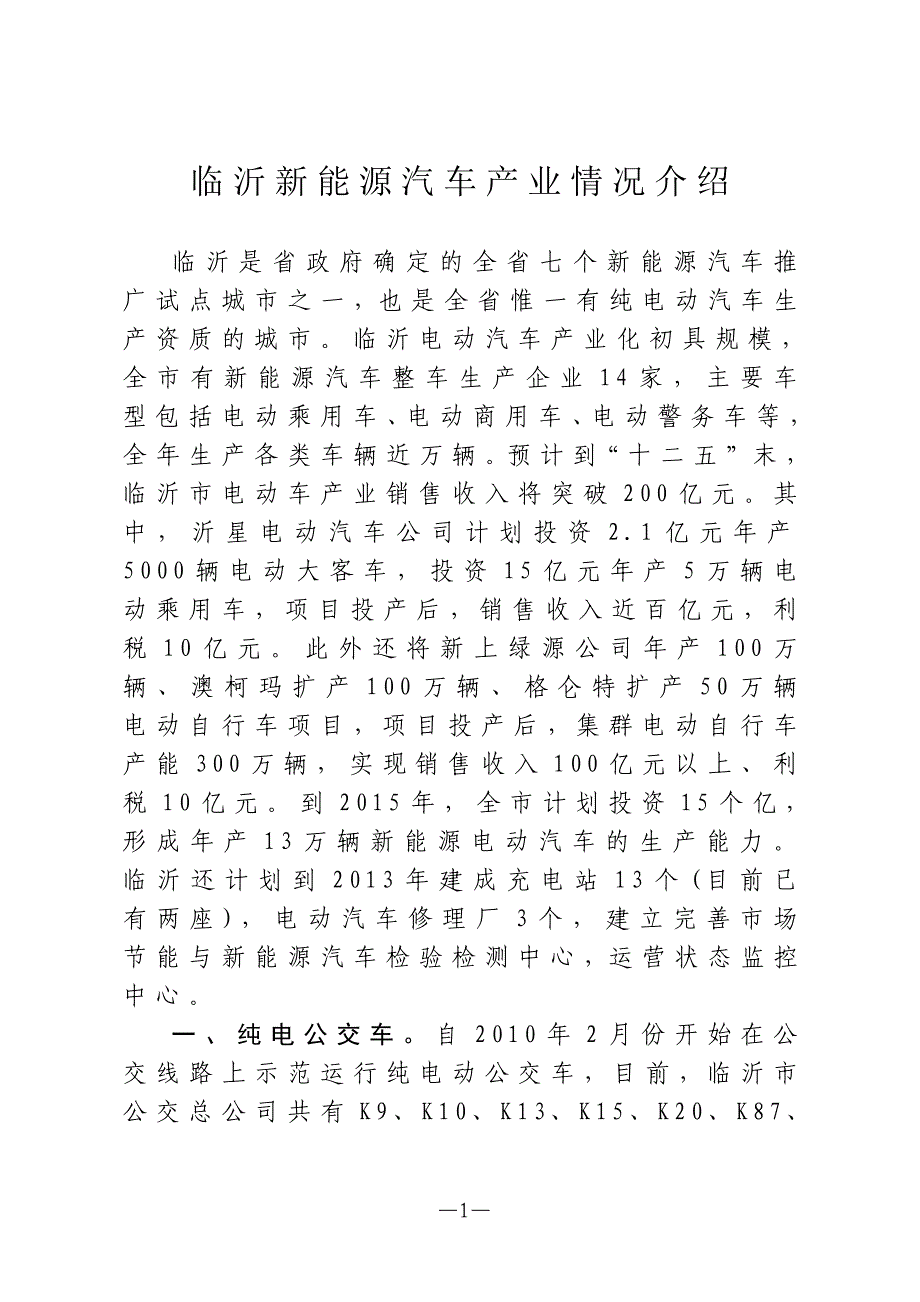 临沂新能源汽车产业情况介绍
临沂是省政府确定的全省七个新能源汽车推
广试点城市之一，也是全省惟一有纯电动汽车生
产资质的城市。临沂电动汽车产业化初具规模，
全市有新能源汽车整车生产企业14家，主要车
型包括电动乘用车、电动商用车、电动警务车等，
全年生产各类车辆近万辆。预计到“十二五”末，
临沂市电动车产业销售收入将突破200亿元。其
中，沂星电动汽车公司计划投资2.1亿元年产
5000辆电动大客车，投资15亿元年产5万辆电
动乘用车，项目投产后，销售收入近百亿元，利
税10亿元。此外还将新上绿源公司年产100万
辆、澳柯玛扩产100万辆、格仑特扩产50万辆
电动自行车项目，项目投产后，集群电动自行车
产能300万辆，实现销售收入100亿元以上、利
税10亿元。到2015年，全市计划投资15个亿，
形成年产13万辆新能源电动汽车的生产能力。
临沂还计划到2013年建成充电站13个(目前已
有两座)，电动汽车修理厂3个，建立完善市场
节能与新能源汽车检验检测中心，运营状态监控
中心。
一、纯电公交车。自2010年2月份开始在公
交线路上示范运行纯电动公交车，目前，临沂市
公交总公司共有K9、K10、K13、K15、K20、K87、
—1—